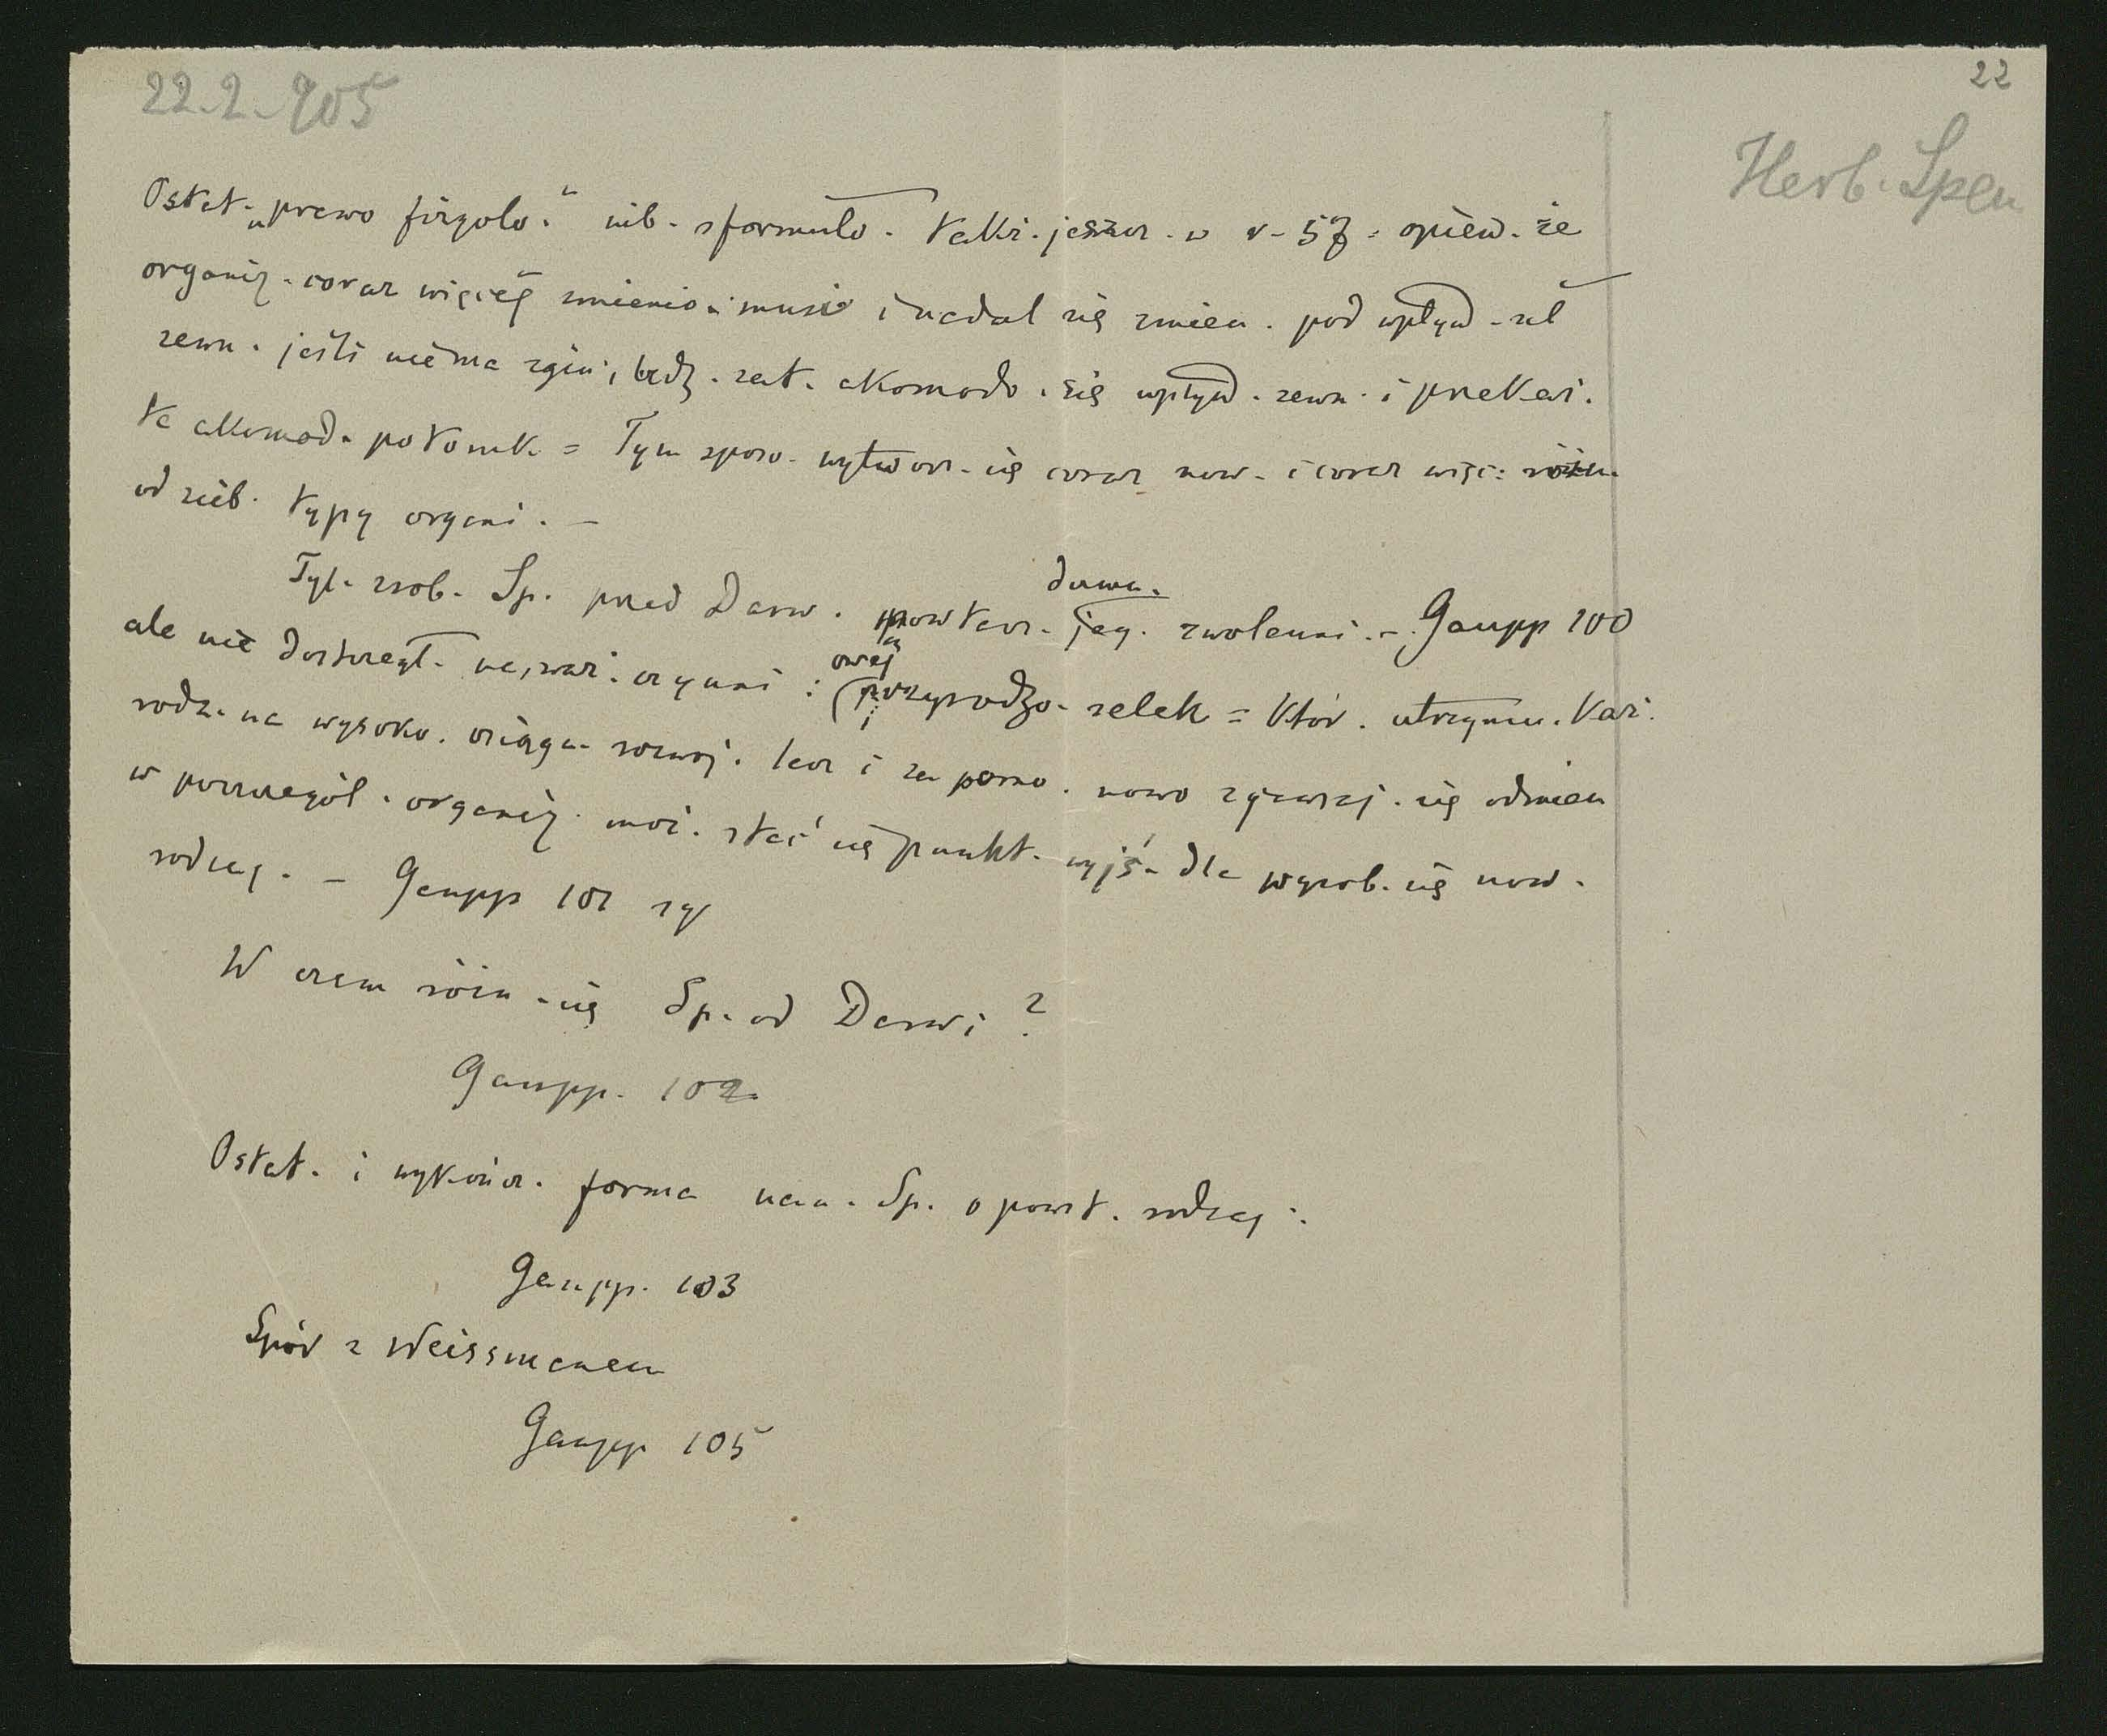 22
22-2-905
Herb. Spen
Ostat. „prawo fizyolo." nib. sformuło. takż. jeszcz. w r. 57 = opiew. że
organiz. coraz więcej zmienio. musi i nadal się zmien. pod wpływ. sił
zewn. jeśli nie ma zgin., będz. zat. akomodo. się wpływ. zewn. i przekaż.
tę akomod. potomk. = Tym sposo. wytworz. się coraz now. i coraz więc. różn.
od sieb. typy organi. —
Tyl. zrob. Sp. przed Darw. powtarz. jeg. dawn. zwolenni. — Gaupp 100
ale nie dostrzegł. najważ. czynni: (owej przyrodzo. selek = któr. utrzymu. każ.
rodz. na wysoko. osiągn. rozwoj. lecz i za pomo. nowo zjawiaj. się odmian
w poszczegól. organiz. moż. stać się punkt. wyjś. dla wyrob. się now.
rodzaj. — Gaupp 101 sq
W czem różn. się Sp. od Darwi?
Gaupp. 102
Ostat. i wykończ. forma nau. Sp. o powst. rodzaj.:
Gaupp. 103
Spór z Weissmanem
Gaupp 105